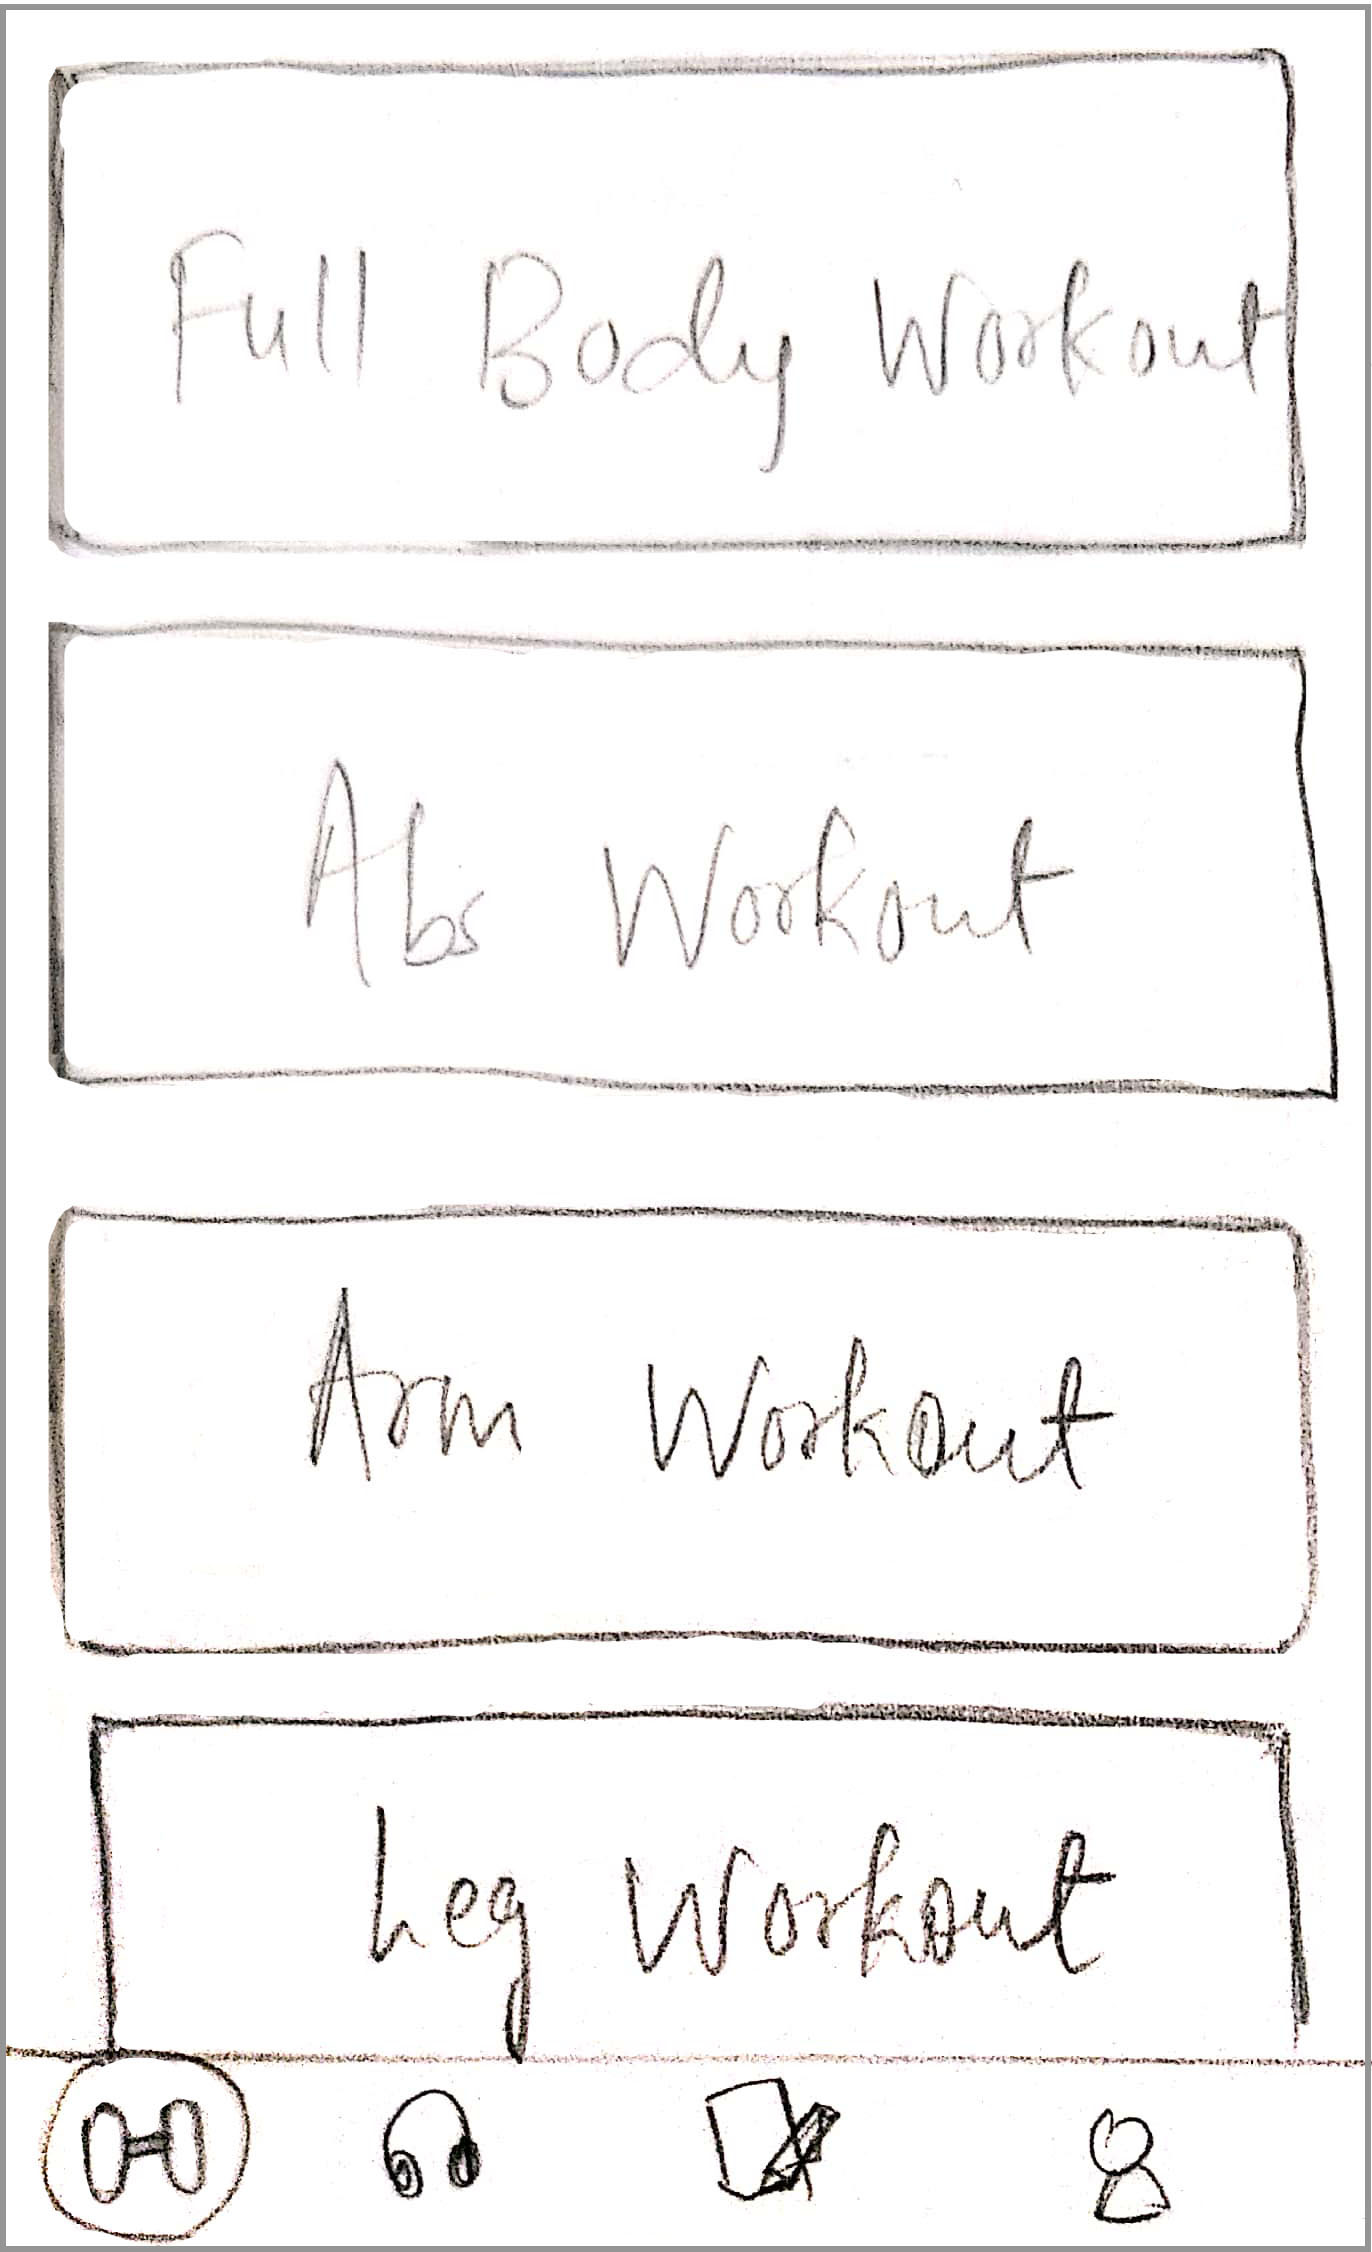 Full Body Workout
Abs Workout
Arm Workout
Leg Workout